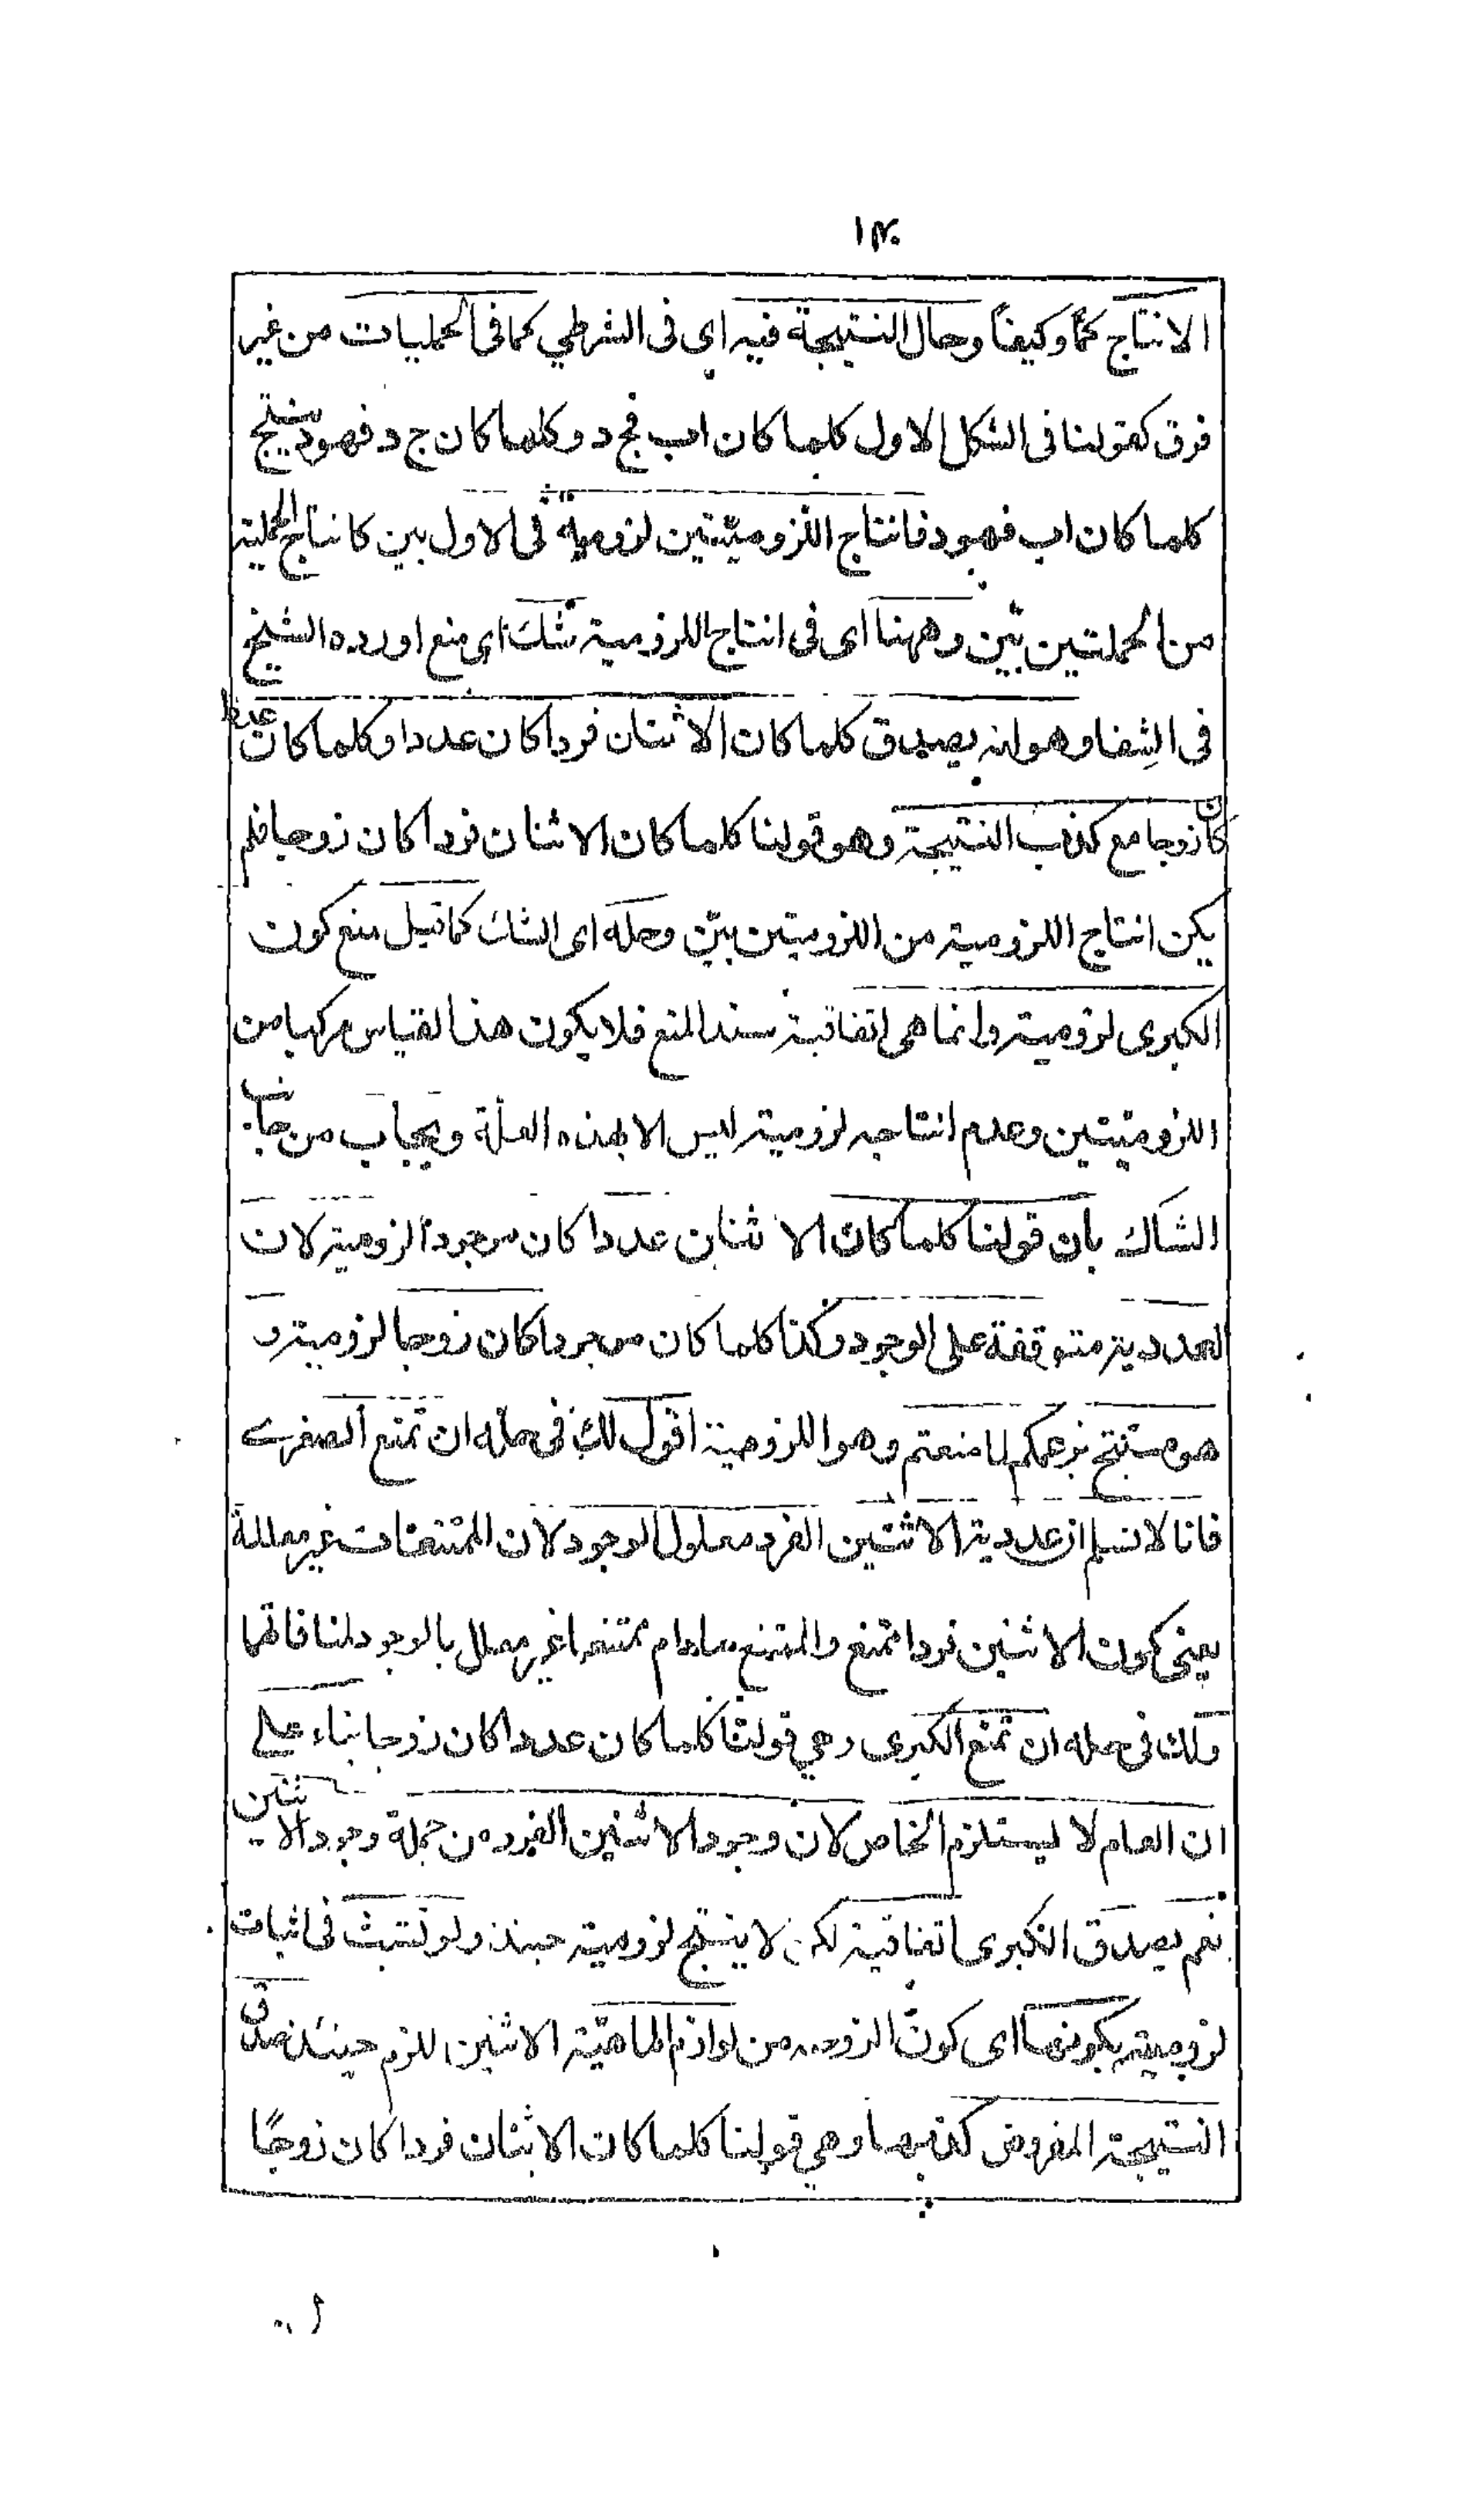 ١٣٠
الانتاج كمًّا وكيفًا وحال النتيجة فيه اي فى الشرطي كما فى الحمليات من غير
فرق كقولنا فى الشكل الاول كلما كان اب فج د وكلما كان ج د فهو د ينتج
كلما كان اب فهو د فانتاج اللزوميتين لزومية فى الاول بين كانتاج الحملية
من الحمليتين بيّن وههنا اى فى انتاج اللزومية شك اى منع اورده الشيخ
فى الشفا وهو انه يصدق كلما كان الاثنان فردا كان عددا وكلما كان عددا
كان زوجا مع كذب النتيجة وهو قولنا كلما كان الاثنان فردا كان زوجا فلم
يكن انتاج اللزومية من اللزوميتين بيّن وحله اى الشك كما قيل منع كون
الكبرى لزومية وانما هى اتفاقية سند المنع فلا يكون هذا القياس مركبا من
اللزوميتين وعدم انتاجه لزومية ليس الا بهذه العلة ويجاب من جانب
الشاك بان قولنا كلما كان الاثنان عددا كان موجودا لزومية لان
العددية متوقفة على الوجود وكذا كلما كان موجودا كان زوجا لزومية و
هو مستنتج بزعمكم لما منعتم وهو اللزومية اقول لك فى حله ان تمنع الصغرى
فانا لا نسلم ان عددية الاثنين الفرد معلول الوجود لان الممتنعات غير معللة
يعنى كون الاثنين فردا ممتنع والممتنع مادام ممتنعا غير معلل بالوجود لمنافاتهما
ولك فى حله ان تمنع الكبرى وهي قولنا كلما كان عددا كان زوجا بناء على
ان العام لا يستلزم الخاص لان وجود الاثنين الفرد من جملة وجود الاثنين
نعم يصدق الكبرى اتفاقية لكن لا ينتج لزومية حينئذ ولو تشبث فى اثبات
لزوميته بكونها اى كون الزوجية من لوازم الماهيّة الاثنين للزم حينئذ صدق
النتيجة المفروض كذبها وهي قولنا كلما كان الاثنان فردا كان زوجًا